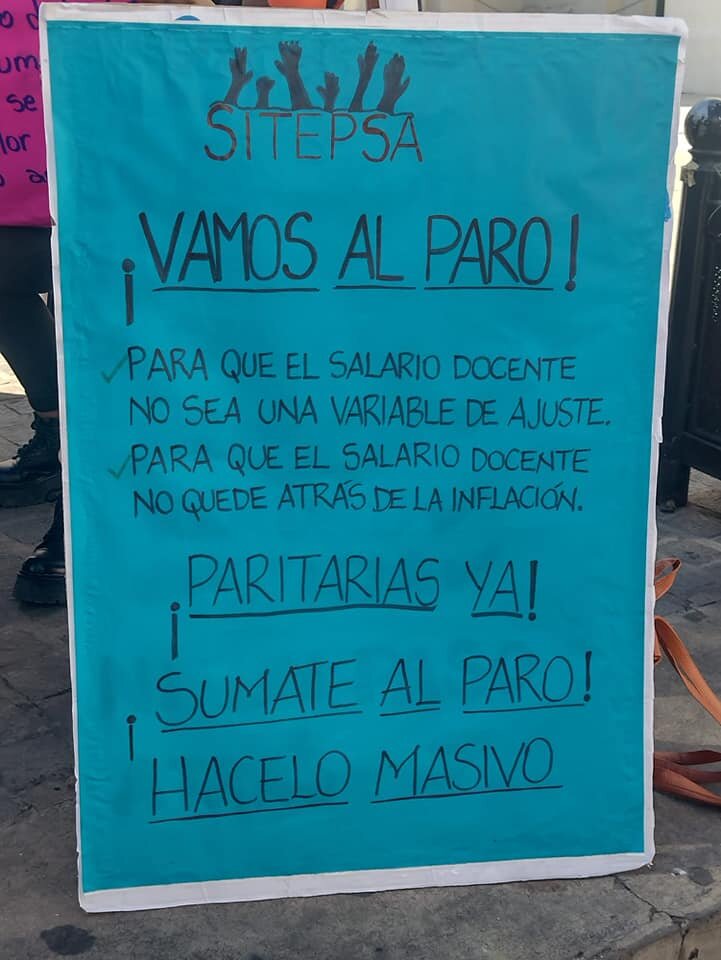 SITEPSA
¡VAMOS AL PARO!
PARA QUE EL SALARIO DOCENTE
NO SEA UNA VARIABLE DE AJUSTE.
PARA QUE EL SALARIO DOCENTE
NO QUEDE ATRÁS DE LA INFLACIÓN.
¡PARITARIAS YA!
¡SUMATE AL PARO!
HACELO MASIVO